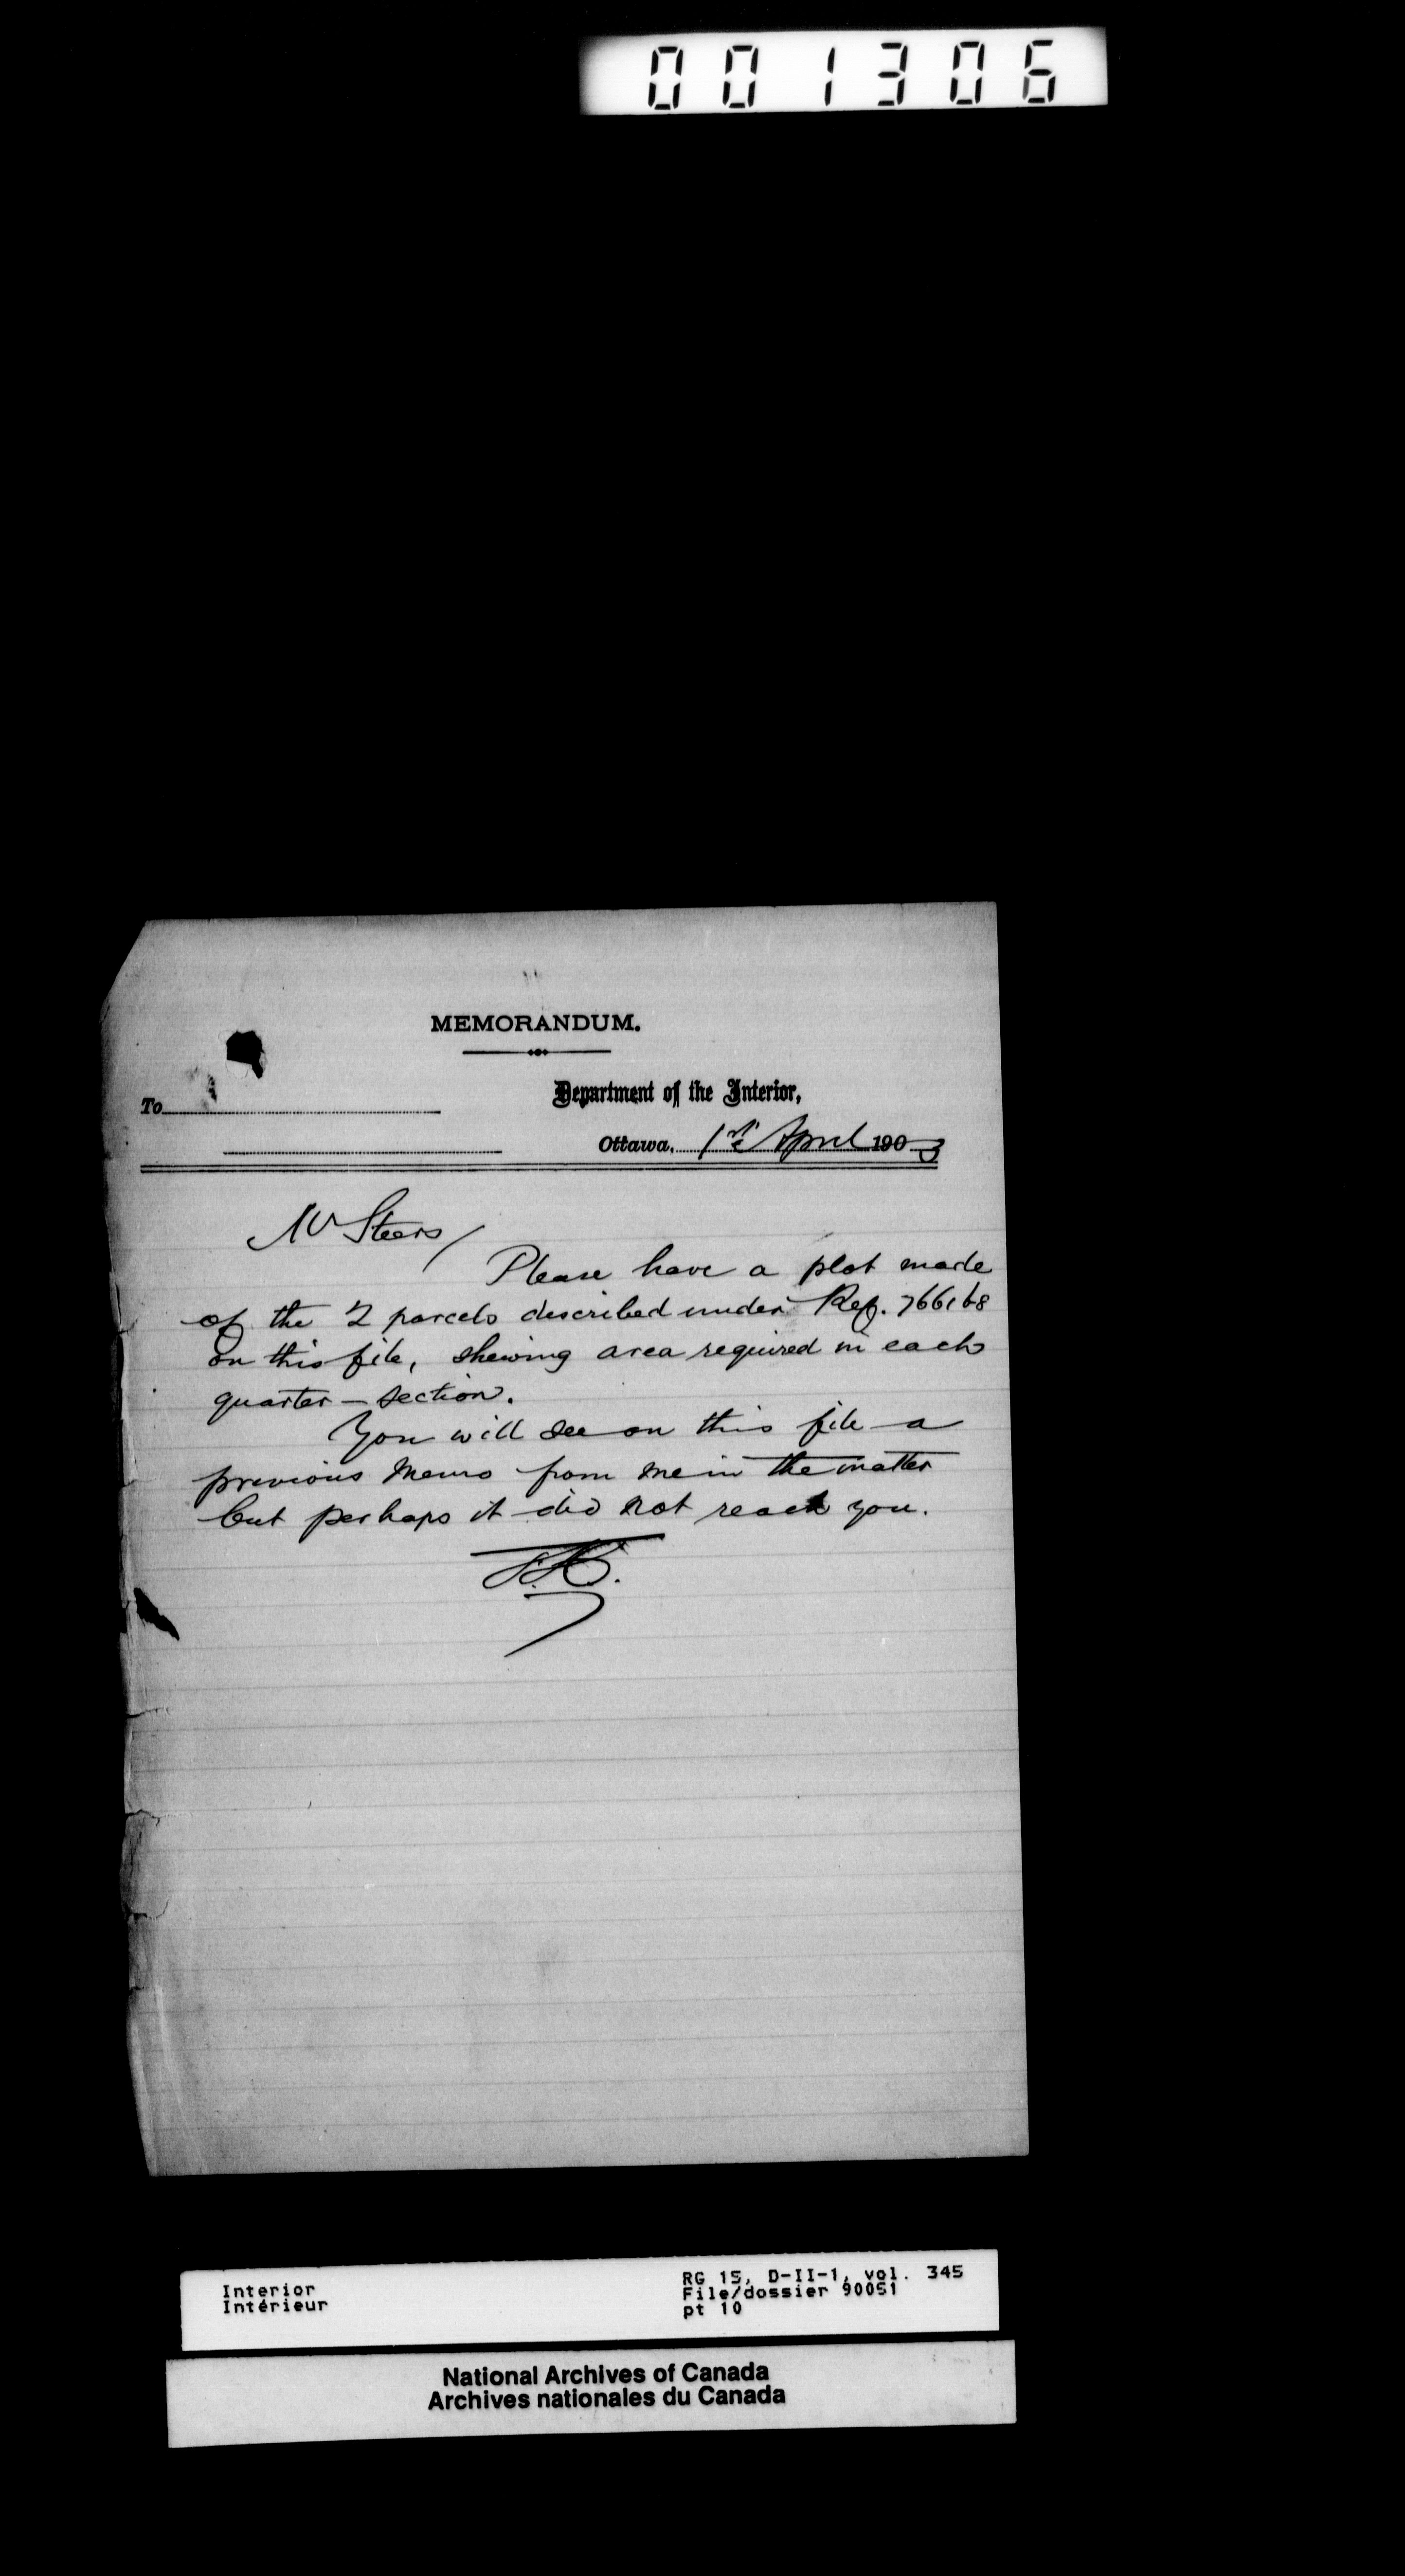 001306
MEMORANDUM.
To
Department of the Interior,
Ottawa, 1st April 1903
Mr Steers
Please have a plot made
of the 2 parcels described under Ref. 766168
on this file, shewing area required in each
quarter-section.
You will see on this file a
previous memo from me in the matter
but perhaps it did not reach you.
Interior
Intérieur
RG 15, D-II-1, vol. 345
File/dossier 90051
pt 10
National Archives of Canada
Archives nationales du Canada